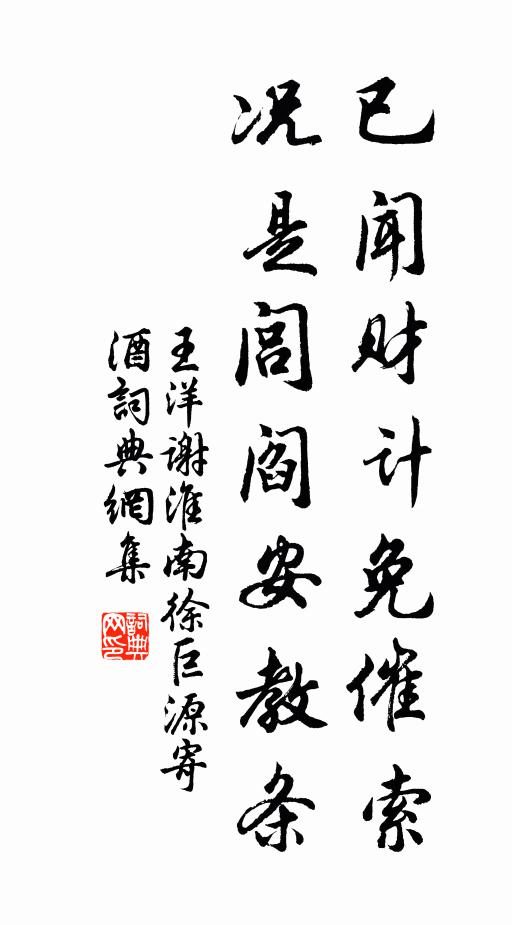 已闻财计免催索
况是闾阎安教条
王洋谢淮南徐巨源寄
酒詞典網集
詞典
网印